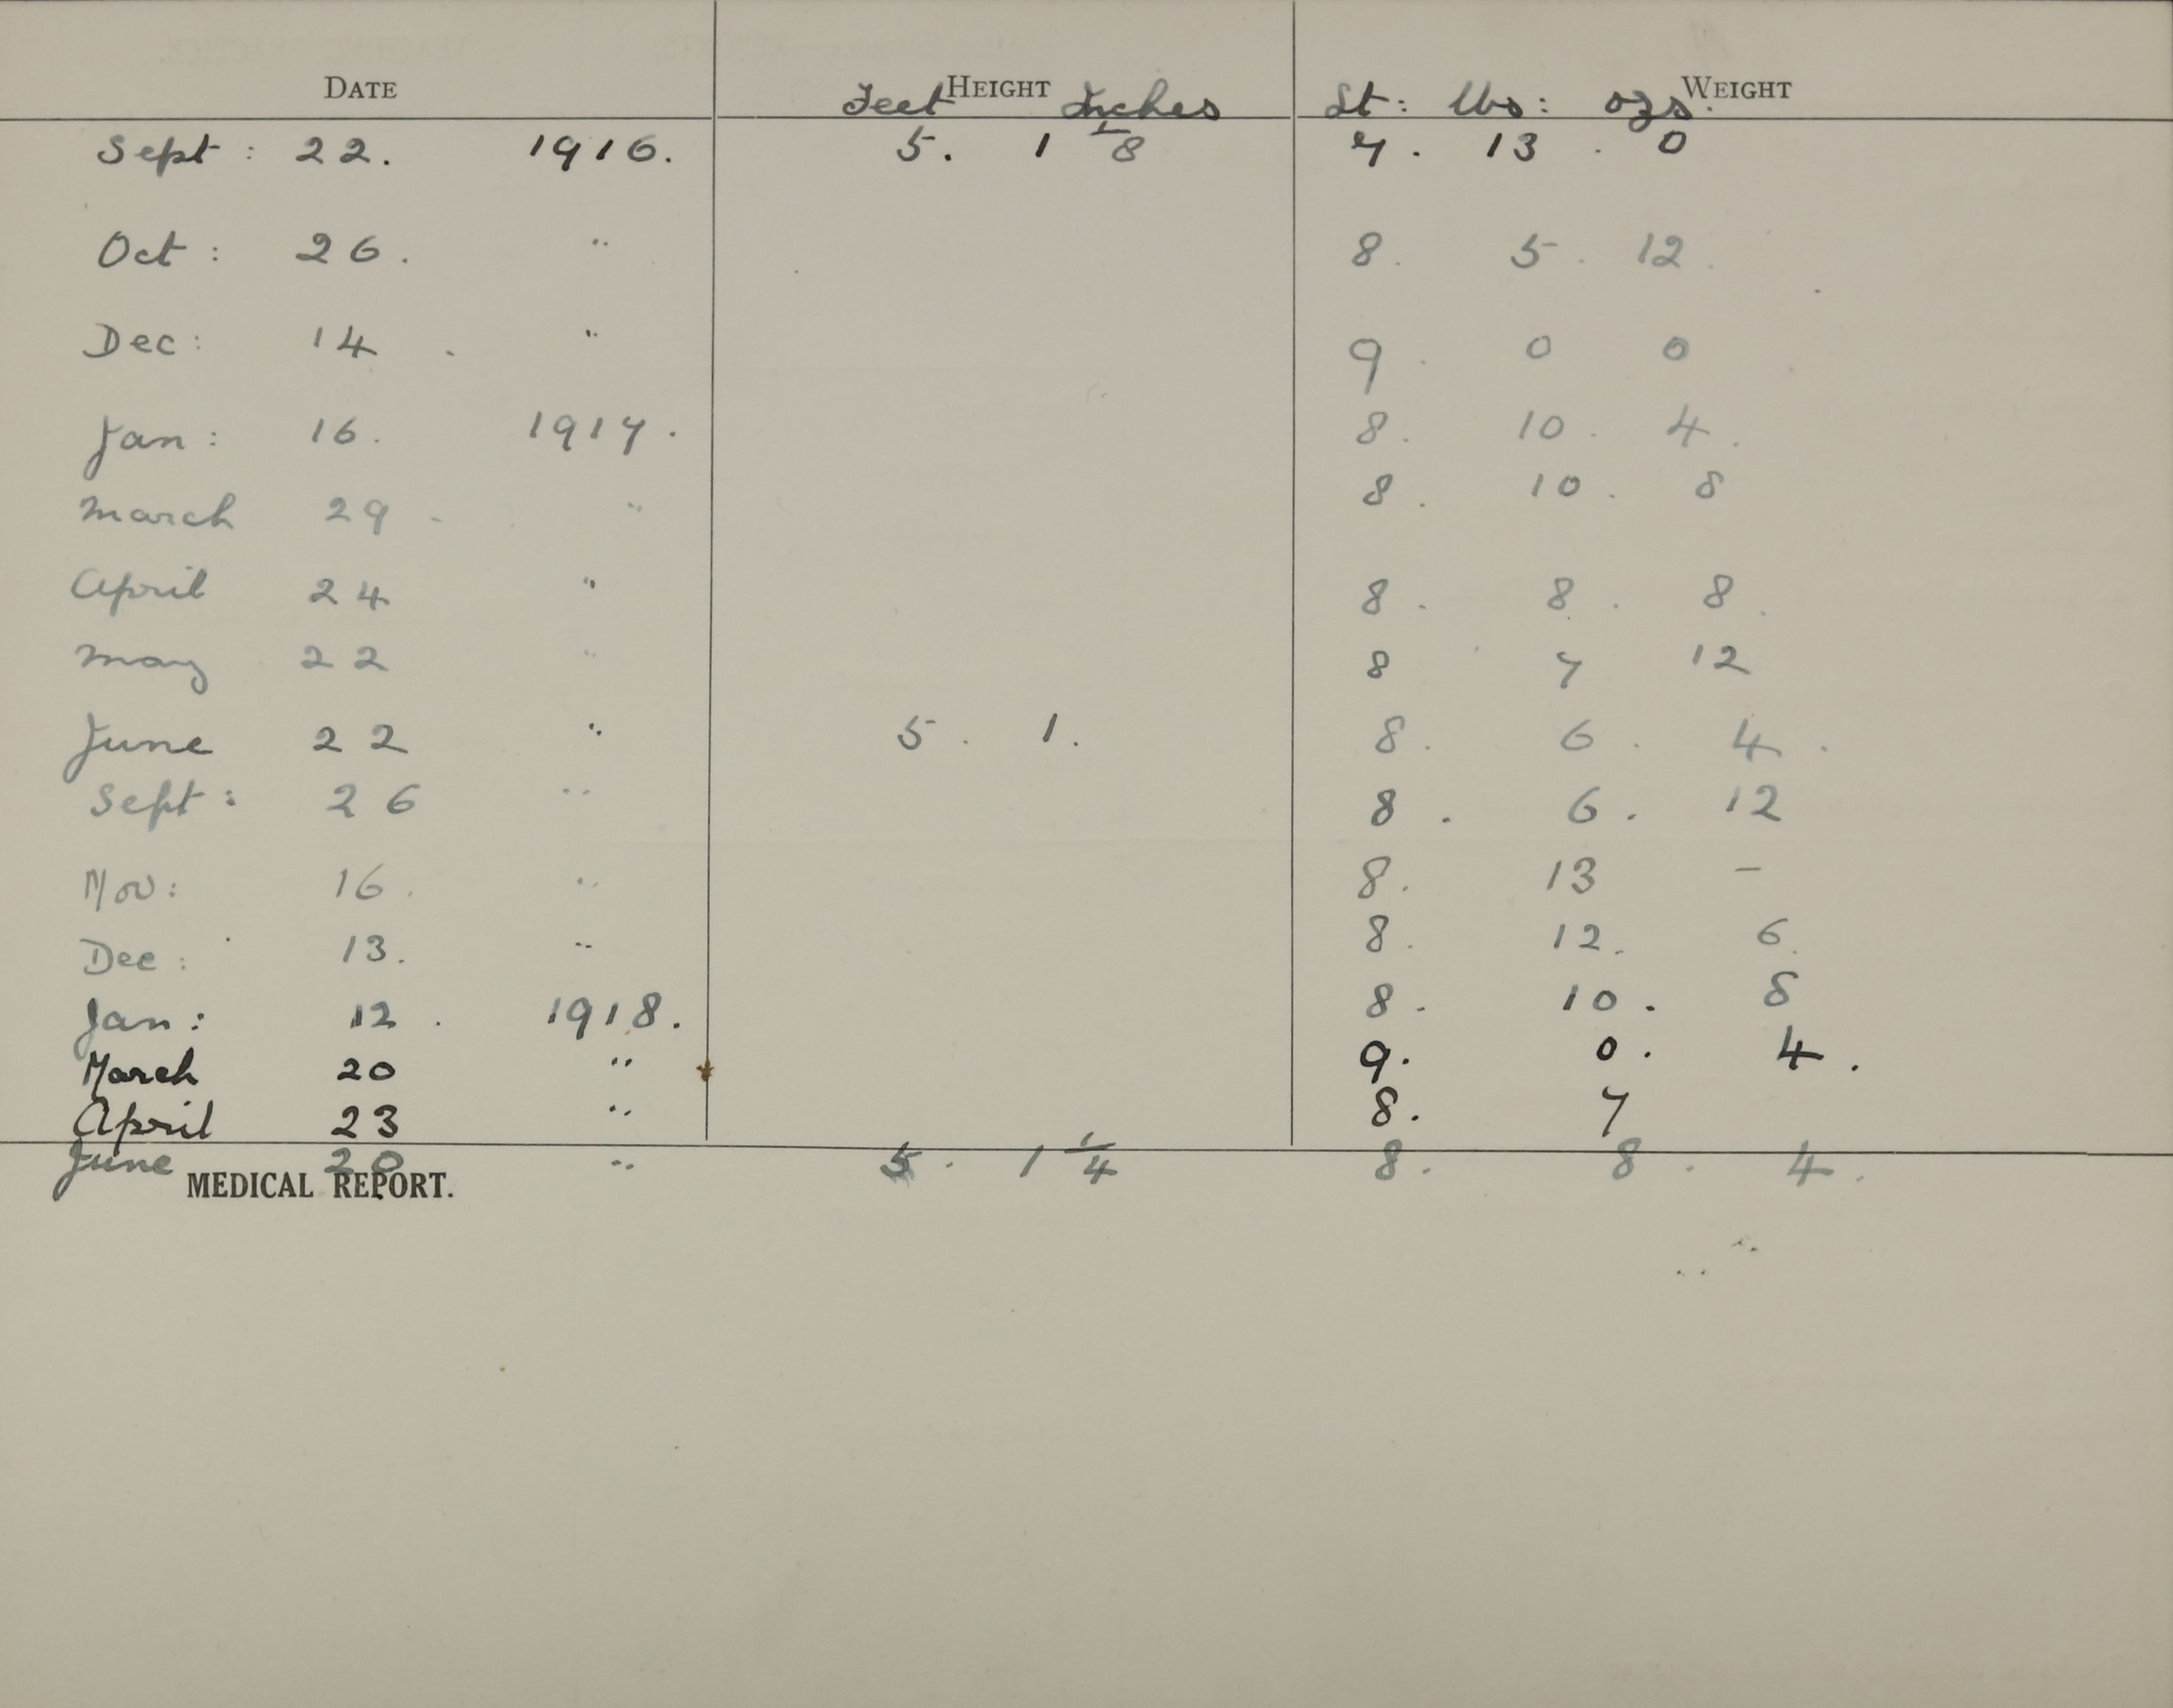 DATE HEIGHT WEIGHT
Feet Inches St: lbs: ozs.
Sept : 22. 1916. 5. 1 1/8 7. 13. 0
Oct : 26. " 8. 5. 12.
Dec: 14. " 9. 0 0
Jan: 16. 1917. 8. 10. 4.
March 29. " 8. 10. 8
April 24 " 8. 8. 8.
May 22 " 8 7 12
June 22 " 5. 1. 8. 6. 4.
Sept: 26 " 8. 6. 12
Nov: 16. " 8. 13 –
Dec: 13. " 8. 12. 6.
Jan: 12. 1918. 8. 10. 8
March 20 " 9. 0. 4.
April 23 " 8. 7
June 20 " 5. 1 1/4 8. 8. 4.
MEDICAL REPORT.